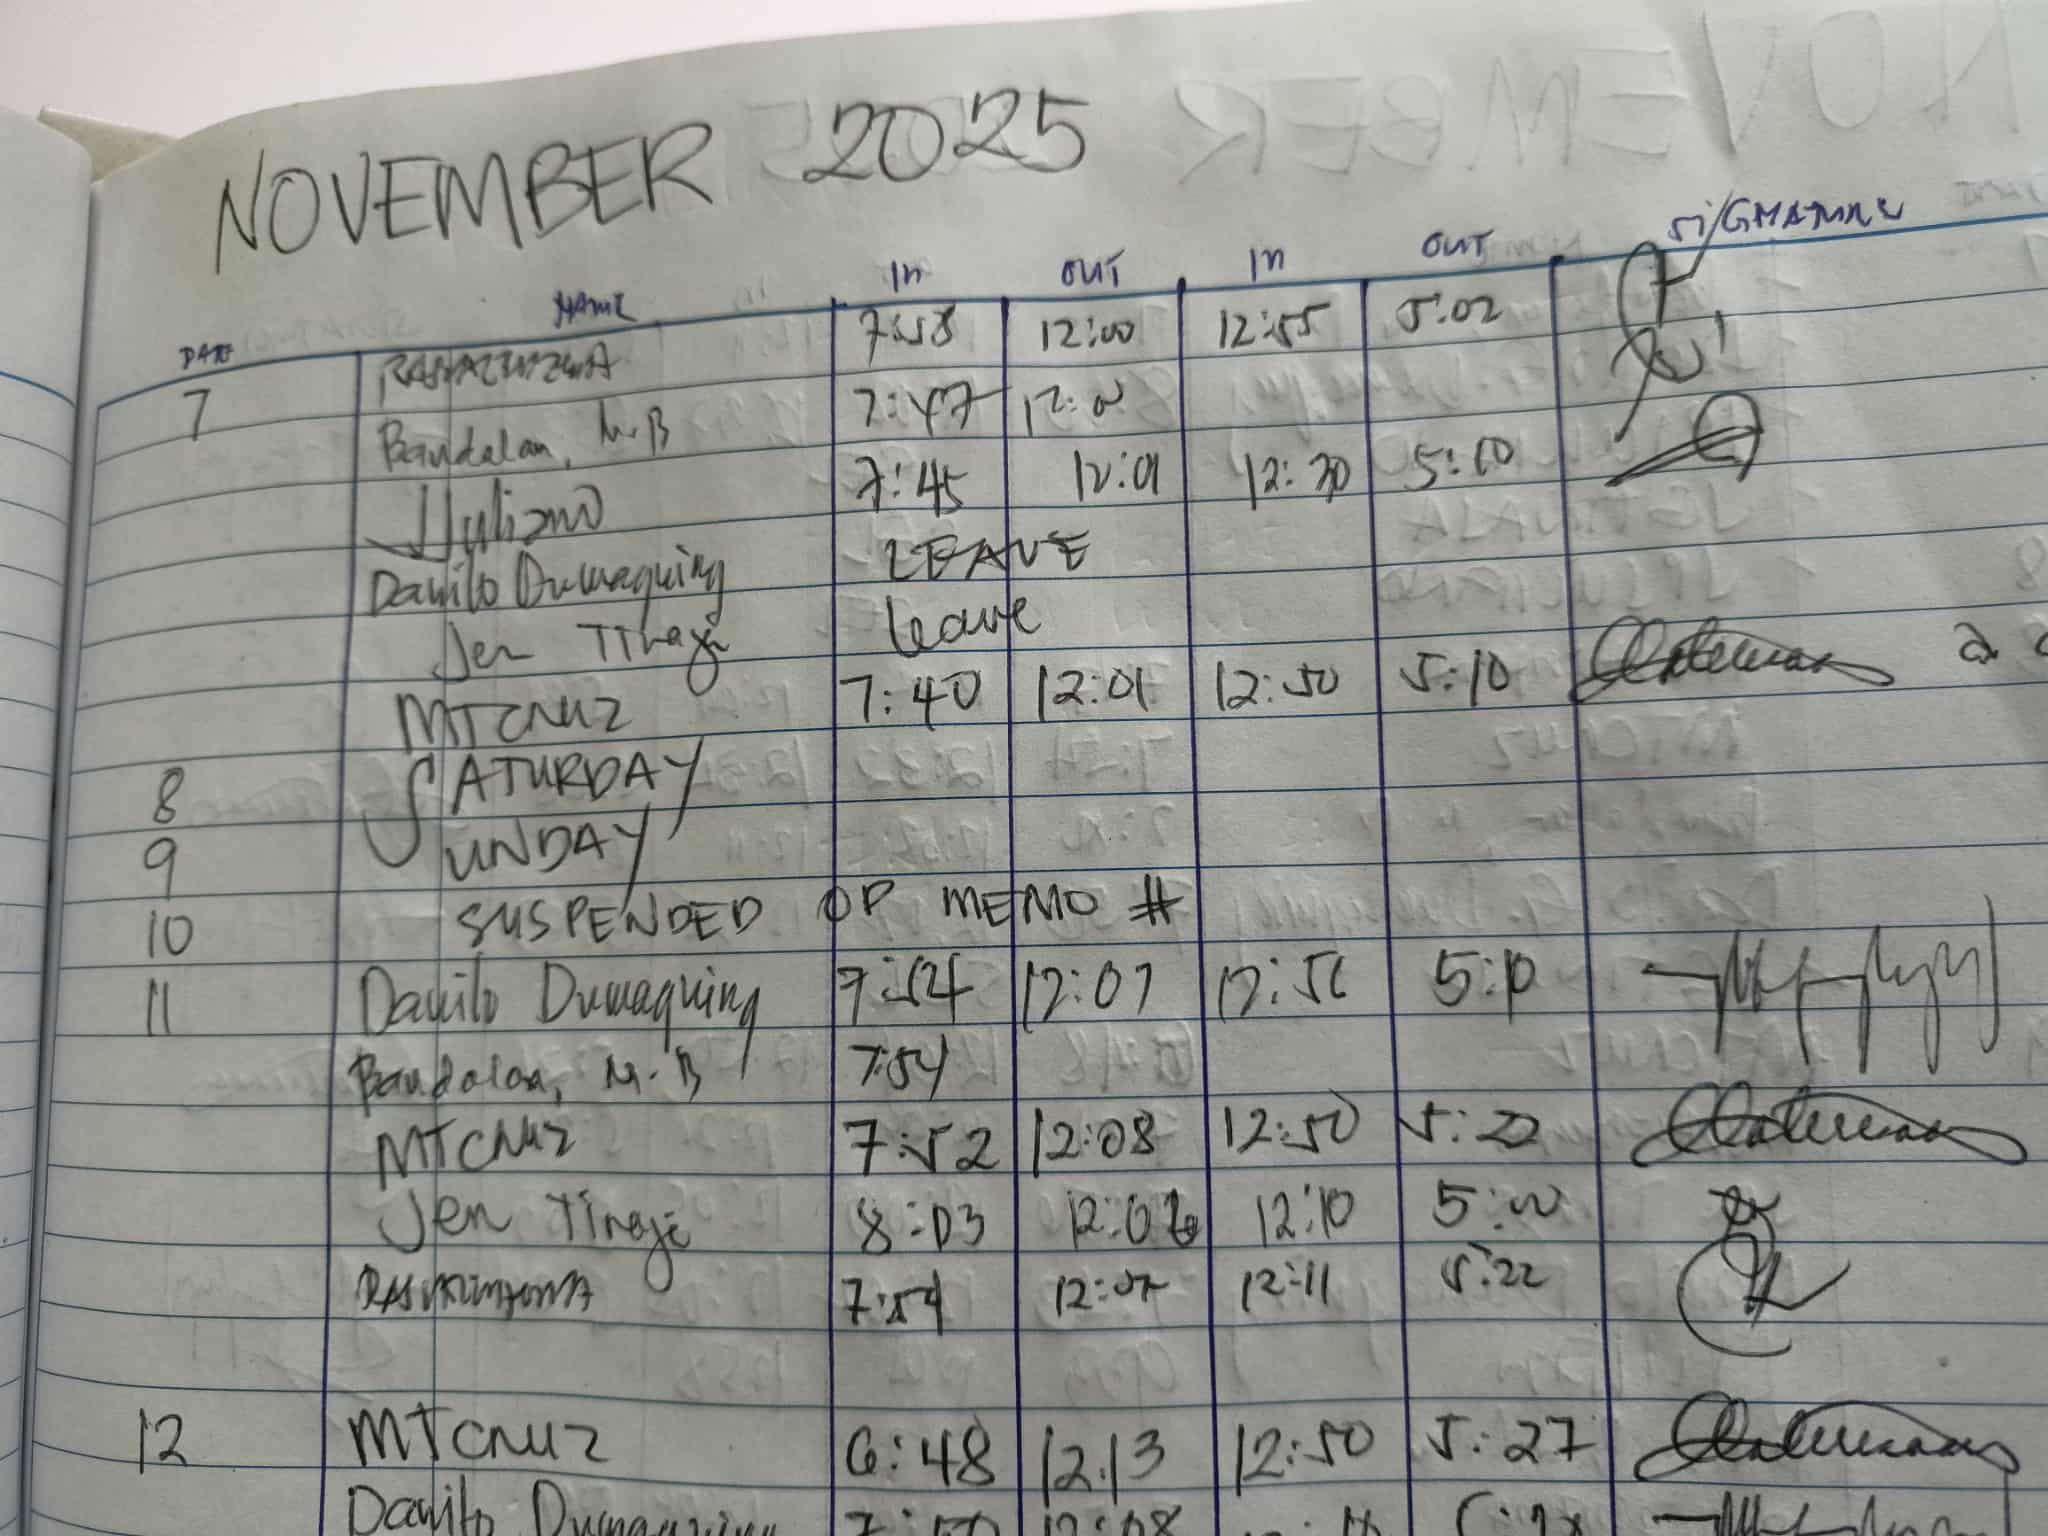 NOVEMBER 2025
DATE NAME IN OUT IN OUT SIGNATURE
7 7:58 12:00 12:55 5:02
Bandalan, M.B 7:47 12:00
JJuliano 7:45 12:01 12:30 5:10
Danilo Dumaquing LEAVE
Jen Tinaje leave
MTCRUZ 7:40 12:01 12:50 5:10
8 SATURDAY
9 SUNDAY
10 SUSPENDED OP MEMO #
11 Danilo Dumaquing 7:54 12:07 12:56 5:10
Bandalan, M.B 7:54
MTCRUZ 7:52 12:08 12:50 5:22
Jen Tinaje 8:03 12:06 12:10 5:00
7:54 12:07 12:11 5:22
12 MTCRUZ 6:48 12:13 12:50 5:27
Danilo Dumaquing 7:50 12:08